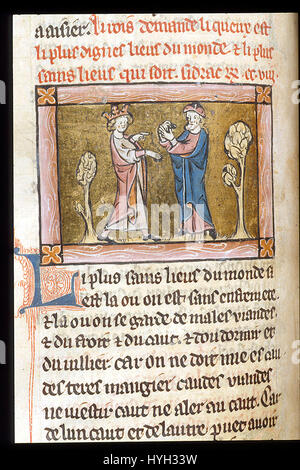 aaisier. Li rois demande li queux est
li plus dignes lieus du monde & li plus
sains lieus qui soit. sidrac
Li plus sains lieus du monde si
est la ou on est sans enfermete.
& la ou on se garde de males viandes.
& du froit & du caut. & dou dormir et
du villier. car on ne doit mie es cau
des teres mangier caudes viandes
ne uestir caut ne aler au caut. Car
de lun caut et de lautre puet auoir